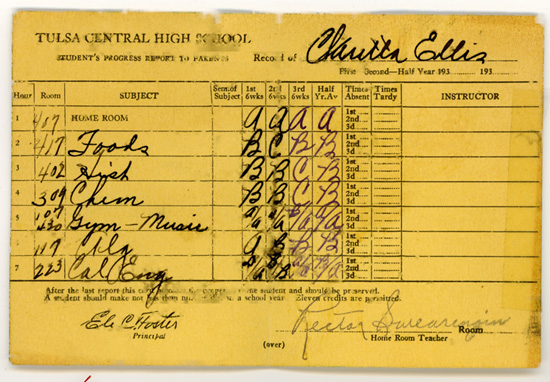 TULSA CENTRAL HIGH SCHOOL
STUDENT'S PROGRESS REPORT TO PARENTS Record of Claretta Ellis
First Second—Half Year 193 193
Hour Room SUBJECT Sem. of Subject 1st 6wks 2d 6wks 3rd 6wks Half Yr. Av Times Absent Times Tardy INSTRUCTOR
1 407 HOME ROOM A A A A 1st 2nd 3d
2 417 Foods B C B B 1st 2nd 3d
3 402 Hist B B C B 1st 2nd 3d
4 309 Chem B B B B 1st 2nd 3d
5 107 Gym-Music 1st 2nd 3d
6 117 A B B B 1st 2nd 3d
7 223 Col Eng 1st 2nd 3d
After the last report this card student and should be preserved.
A student should make not a school year Eleven credits are permitted.
Eli C. Foster
Principal
Rector Swearengin Room
Home Room Teacher
(over)